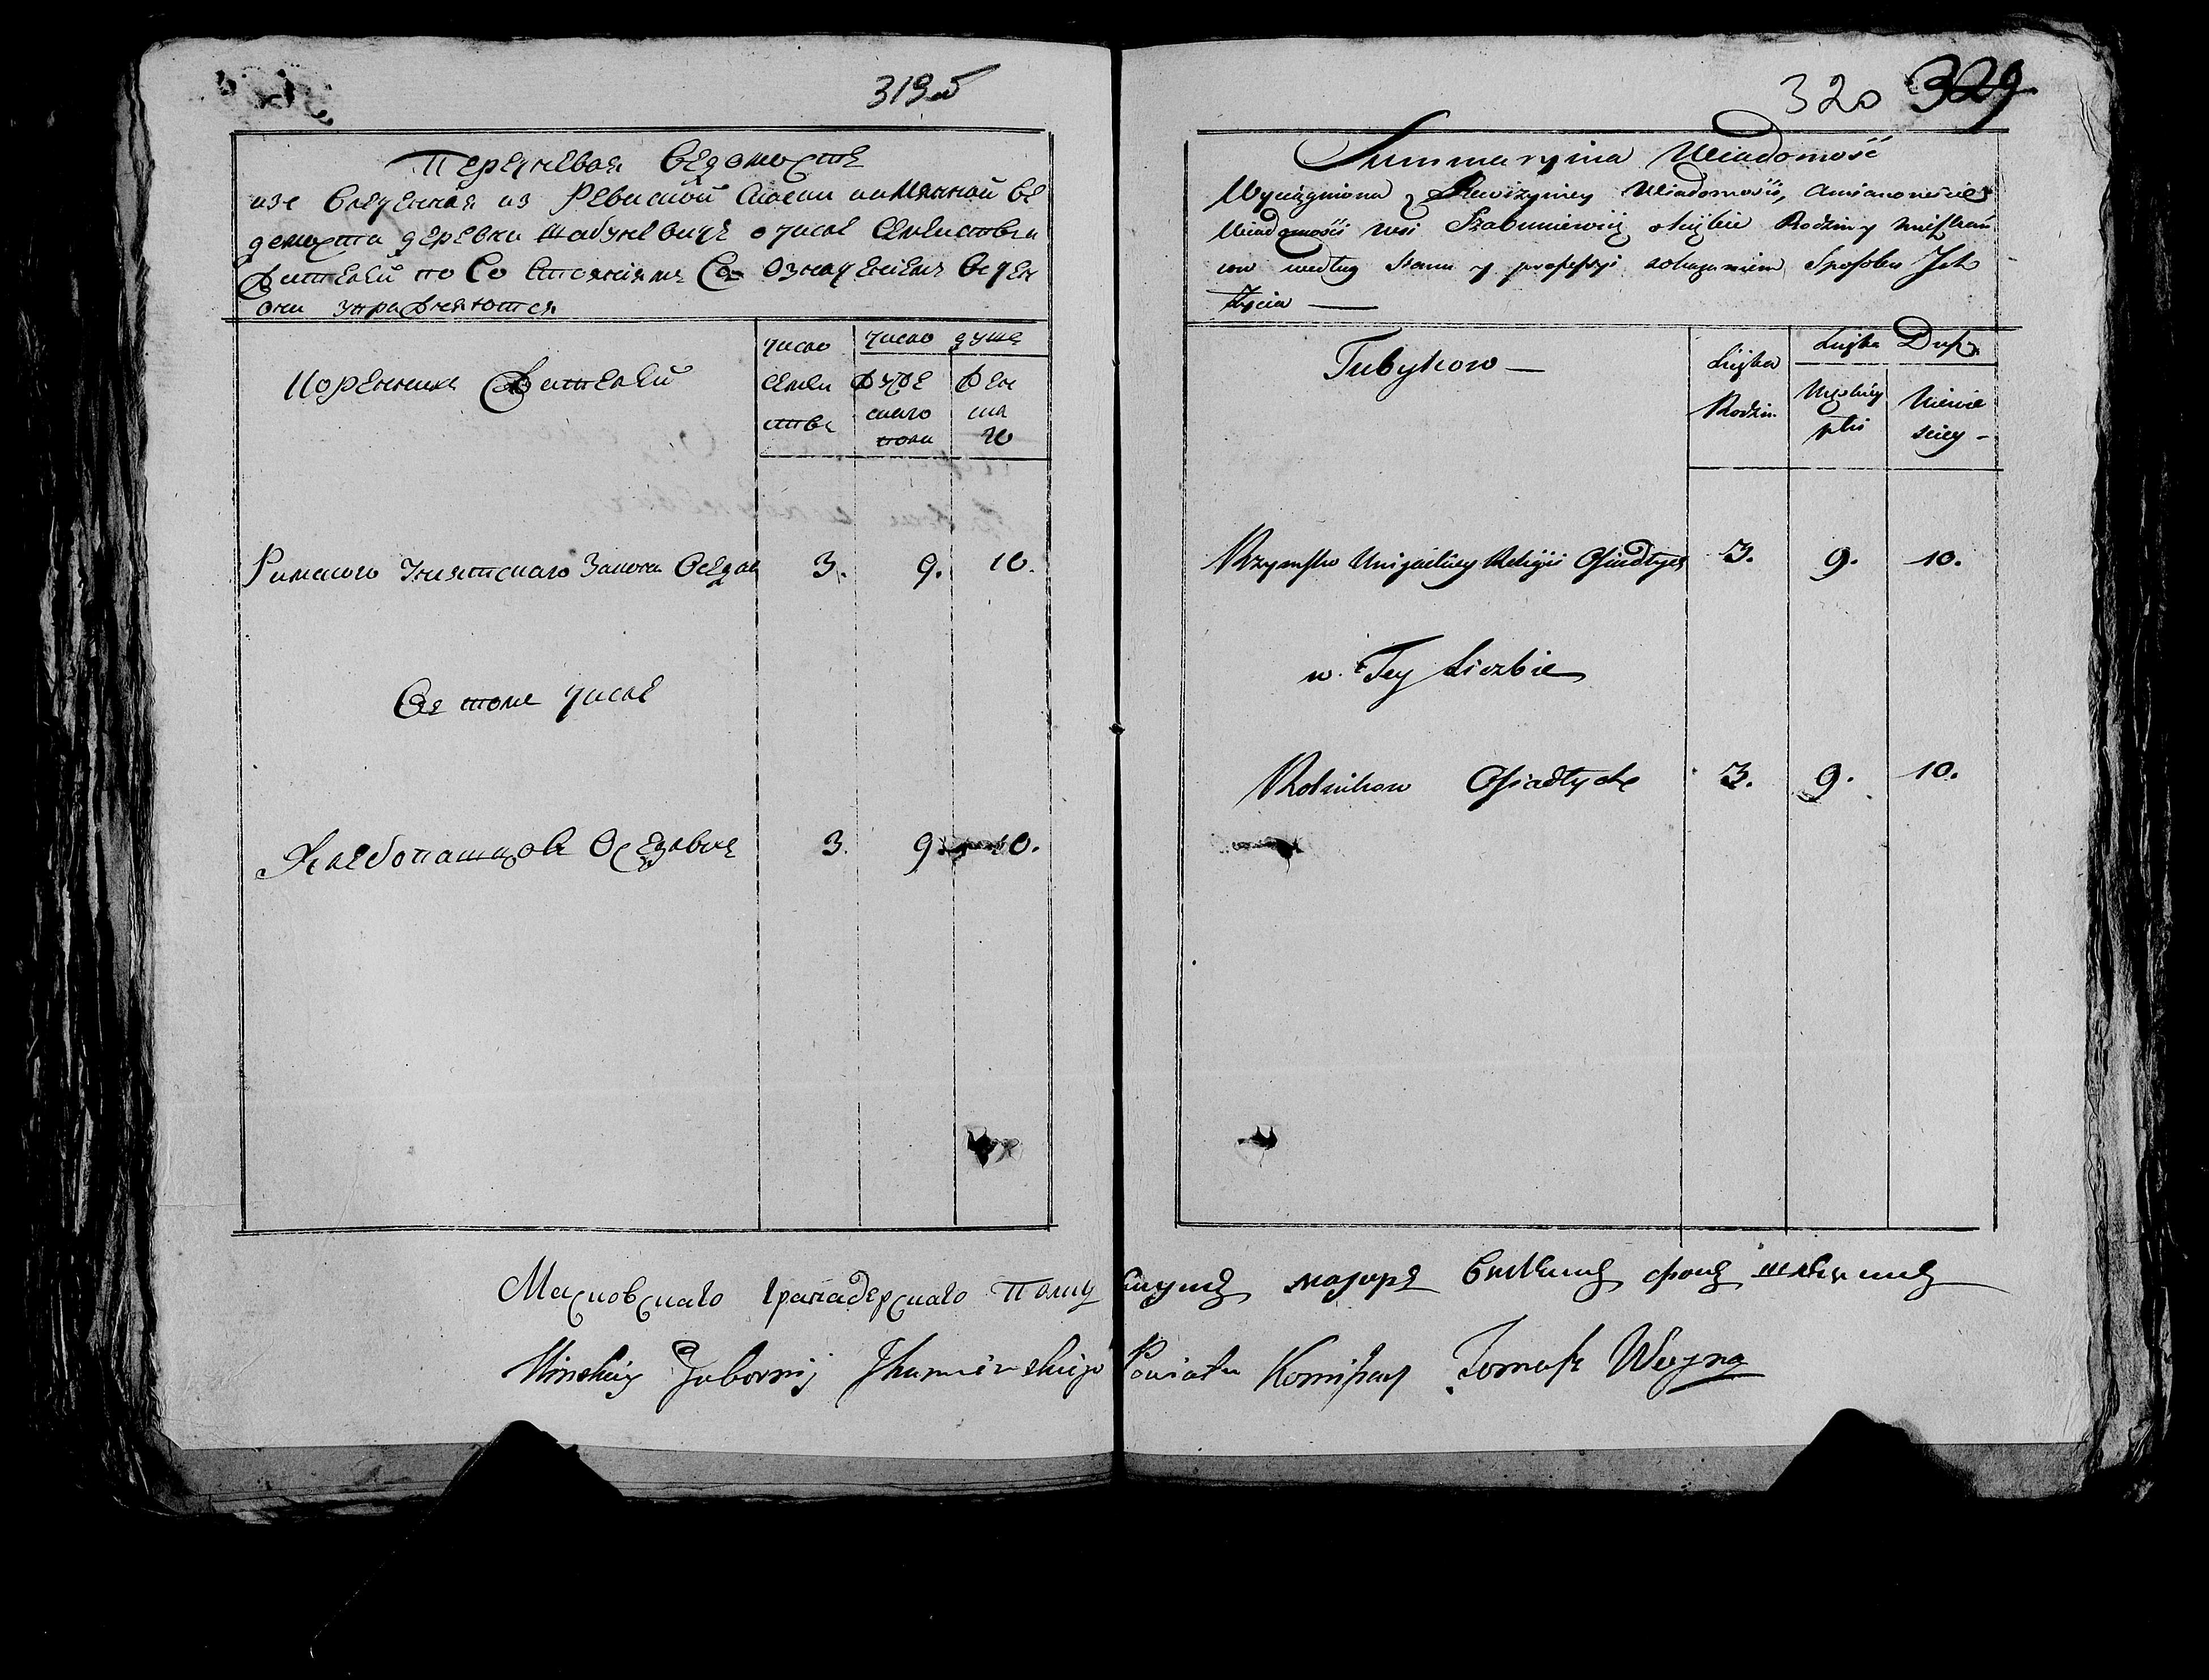 319об
Перечневая ведомость
изъ влеченная из Ревиской Скаски иимянной ве
домости деревни Шабуневичъ о числе Семействъ и
жителей по Со стоянiямъ Съ Означенiемъ в чем
они упражняются
Коренныхъ жителей
число
семей
ствъ
число душъ
муже
скаго
пола
жен
ска
го
Римского Униятского Закона Оседлы 3. 9. 10.
Въ томъ числе
Хлебопашцовъ Оседлыхъ 3. 9. 10.
320 329
Summaryina Wiadomość
Wyciągniona z Rewizyiney Wiadomości, Amianowicie
Wiadomości wsi Szabuniewicz o liczbie Rodzin y mieszkań
cow według Stanu y professyi zokazaniem Sposobu Ich
Życia —
Tubylcow —
Liczba
Rodzin
Liczba Dusz
Męskiey
płci
Niewie
sciey -
Rzymsko Uniyackiey Religii Osiadłych 3. 9. 10.
w Tey Liczbie
Rolnikow Osiadłych 3. 9. 10.
Московскаго гранадерскаго Полку Секунд маиоръ
Minskiey Gubernij Jhumenskiego Powiatu Komisarz Tomasz Woyna